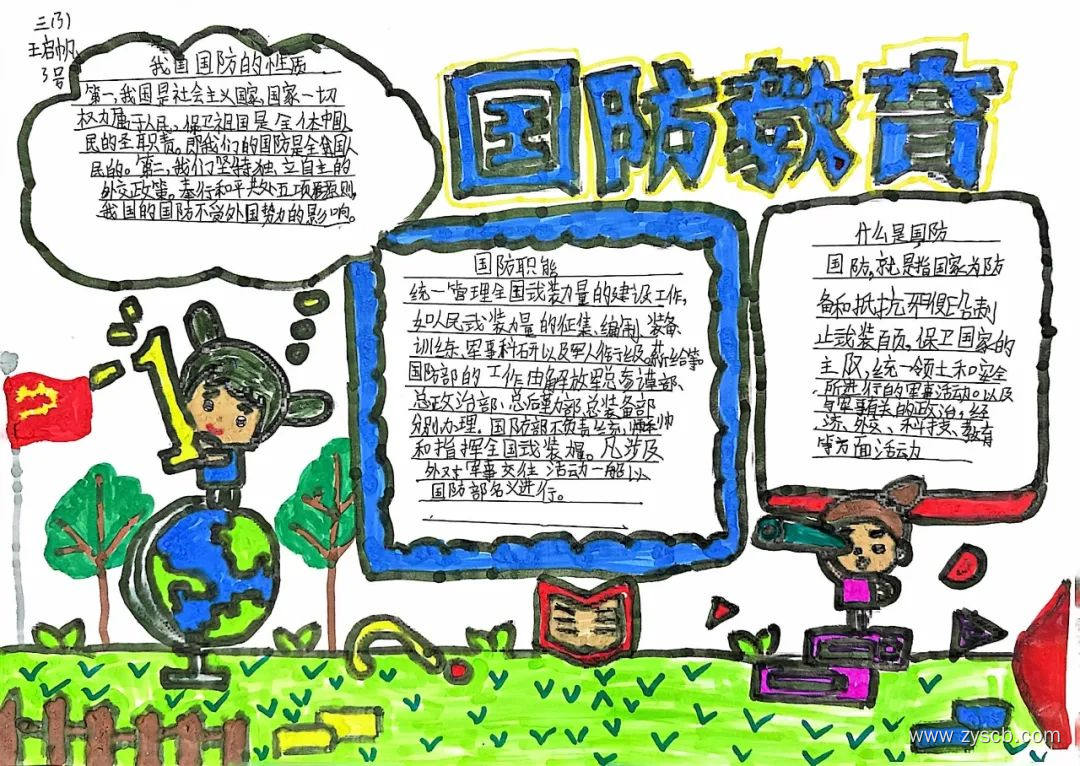 三(3)
王启帆
3号
我国国防的性质
第一,我国是社会主义国家,国家一切
权力属于人民,保卫祖国是全体中国人
民的圣职责。即我们的国防是全国人
民的。第二,我们坚持独立自主的
外交政策。奉行和平共处五项原则,
我国的国防不受外国势力的影响。
国防教育
国防职能
统一管理全国武装力量的建设工作,
如人民武装力量的征集、编制、装备
训练、军事科研以及军人衔级、薪给等
国防部的工作由解放军总参谋部、
总政治部、总后勤部、总装备部
分别办理。国防部不负责
和指挥全国武装。凡涉及
外对军事交往活动一般以
国防部名义进行。
什么是国防
国防,就是指国家为防
备和抵抗
止武装,保卫国家的
主,统一领土和安全
所进行的军事活动。以及
与军事有关的政治,经
济、外交、科技、教育
等方面活动
www.zyscb.com